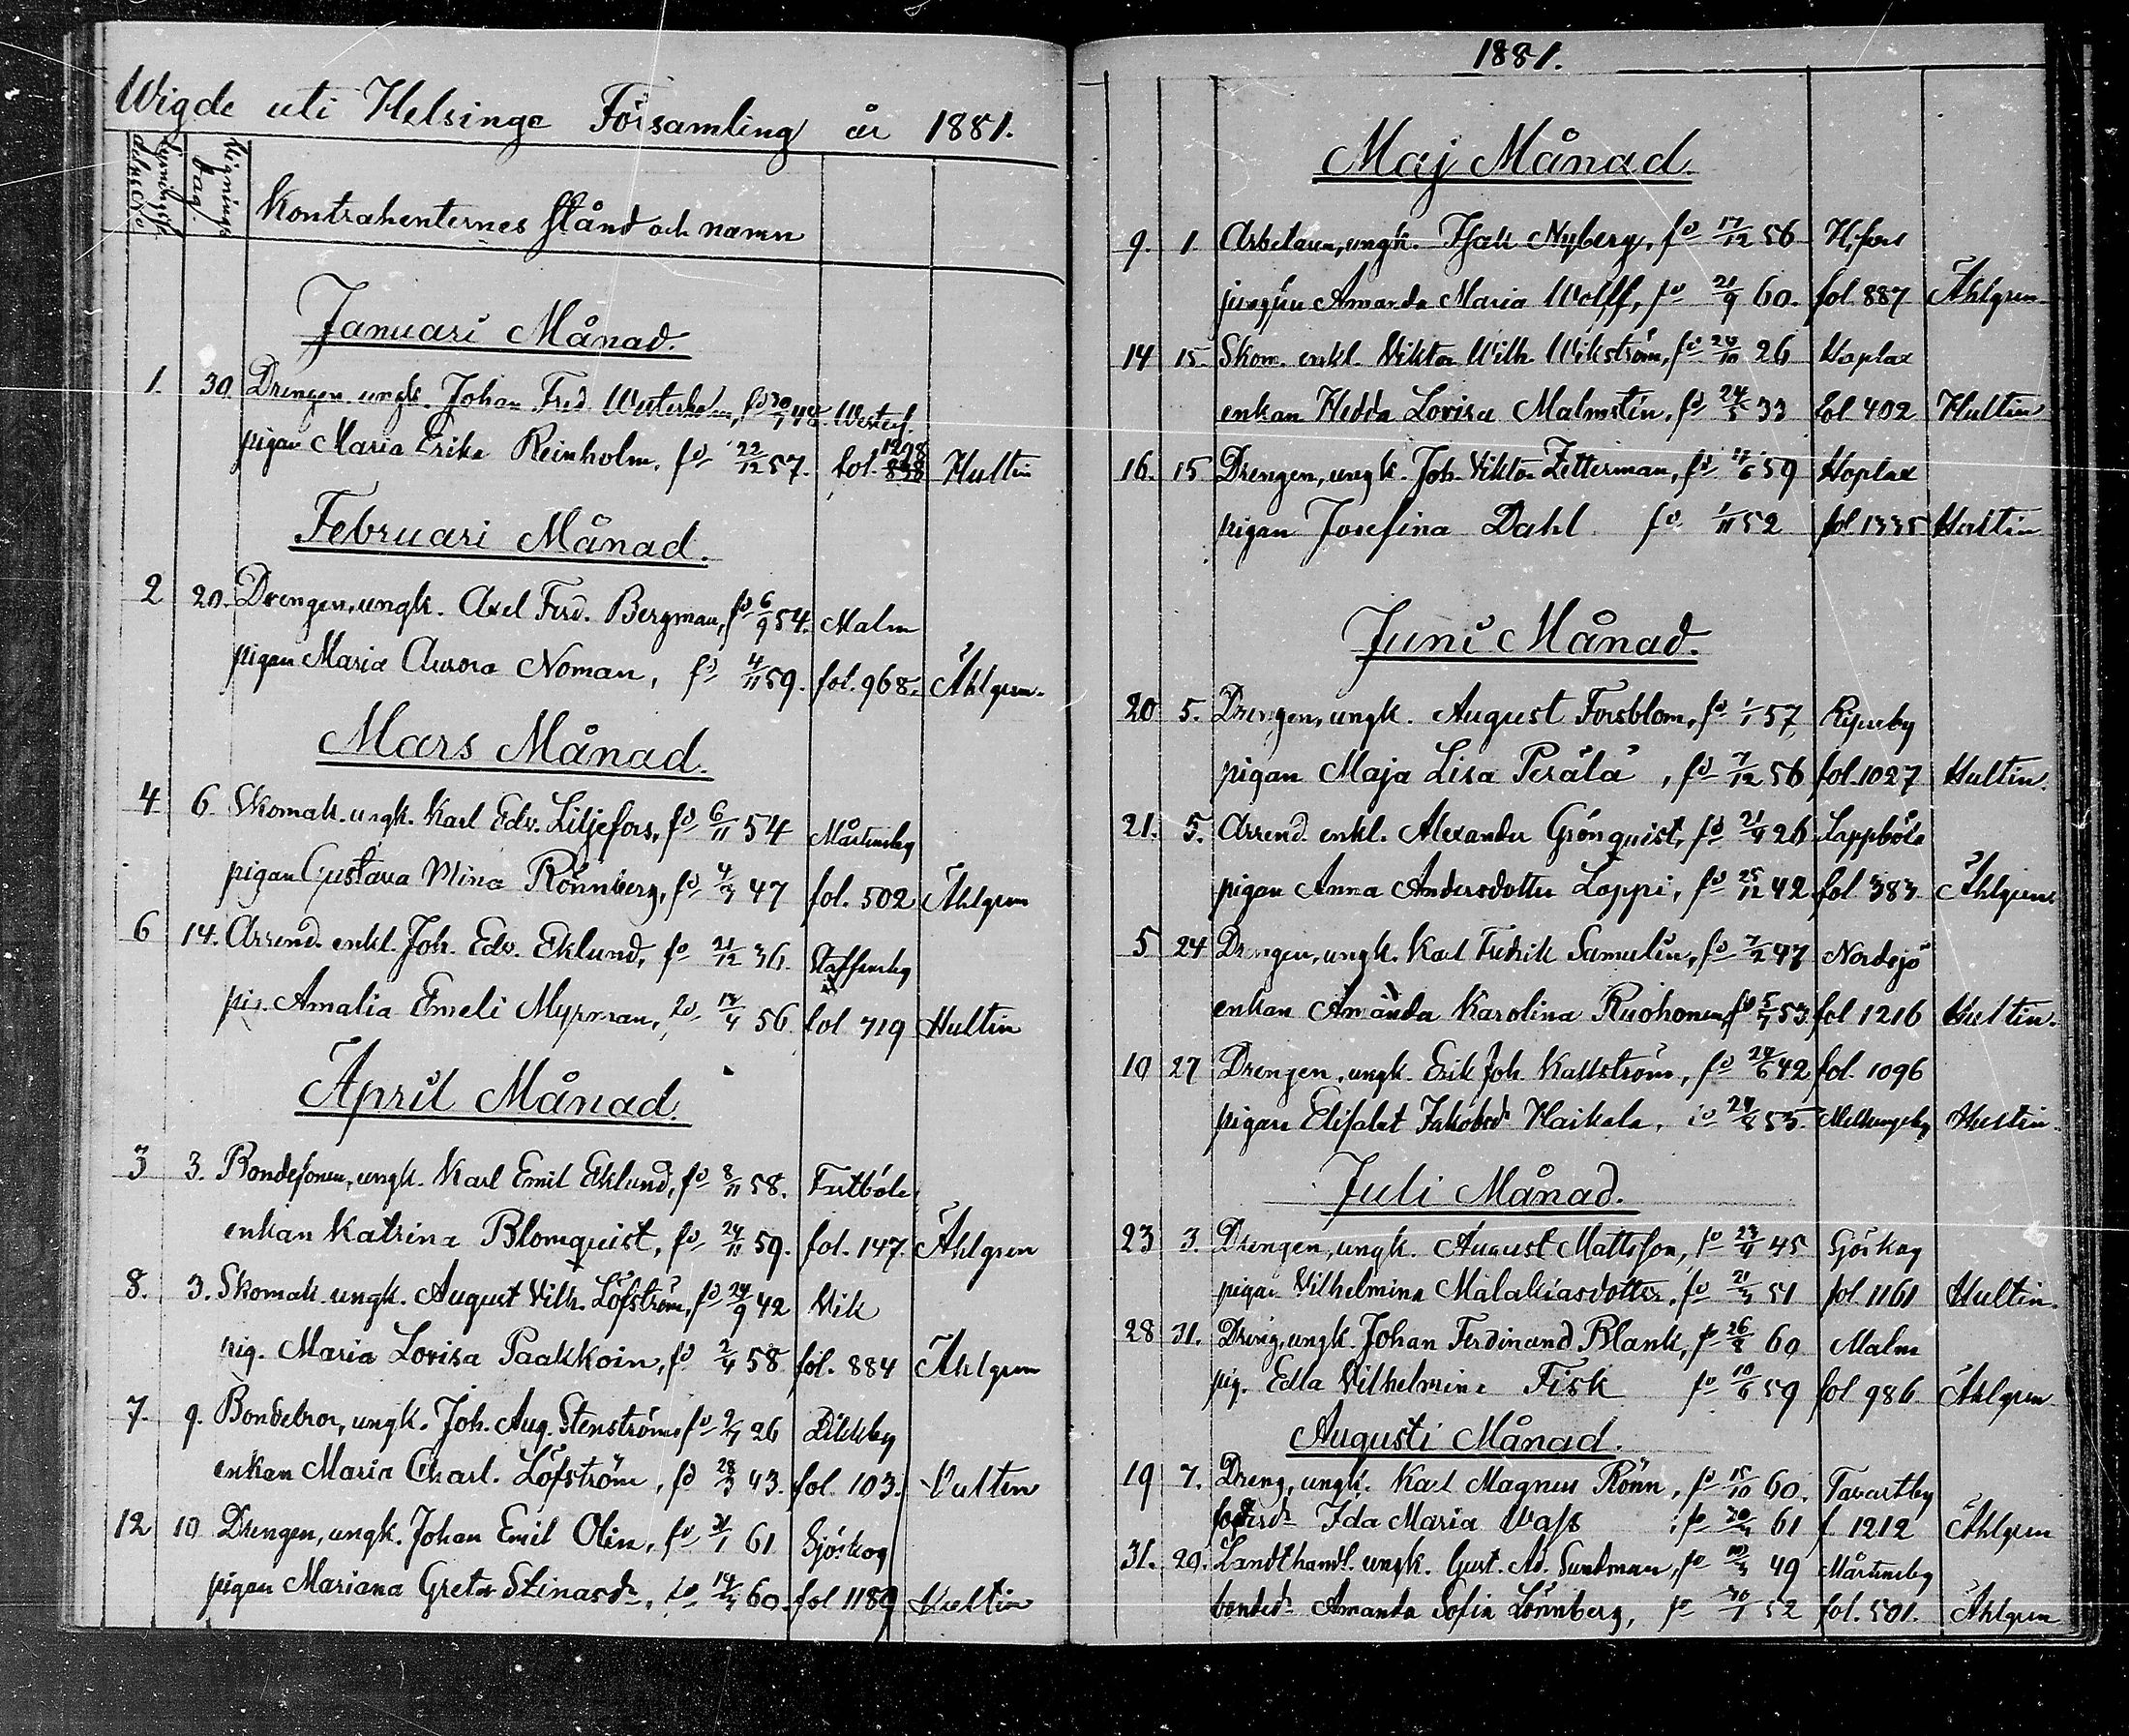 Wigde uti Helsinge Församling år 1881.
Lysnings
Wignings
dag.
Kontrahenternes stånd och namn
Januari Månad.
1. 30 Drengen, ungk. Johan Fred. Westerholm, fd 30/7 48. Westerk.
pigan Maria Erika Reinholm, fd 22/12 57. fol. 1298 Hultin
Februari Månad.
2 20. Drengen, ungk. Axel Ferd. Bergman, fd 6/9 54. Malm
pigan Maria Aurora Noman, fd 4/11 59. fol. 968. Åhlgren.
Mars Månad.
4 6. Skomak. ungk. Karl Edv. Liljefors, fd 6/11 54 Mårtensby
pigan Gustava Mina Rönnberg, fd 47 fol. 502 Åhlgren
6 14. Arrend. enkl. Joh. Edv. Eklund, fd 21/12 36. Staffansby
pig. Amalia Emeli Myrman, fd /4 56 fol 719 Hultin
April Månad.
3 3. Bondesonen, ungk. Karl Emil Eklund, fd 8/11 58. Tristböle
enkan Katrina Blomquist, fd 24/11 59. fol. 147. Åhlgren
8. 3. Skomak. ungk. August Vilh. Löfström, fd 24/9 42 Vik
pig. Maria Lovisa Paakkoin, fd 2/4 58 fol. 884 Åhlgren
7. 9. Bondebror, ungk. Joh. Aug. Stenström, fd 26 Dickby
enkan Maria Charl. Löfström, fd 28/3 43. fol. 103. Hultin
12 10 Drengen, ungk. Johan Emil Olin, fd 61 Sjöskog
pigan Mariana Greta Stinasdr, fd 60. fol 1189 Hultin
1881.
Maj Månad.
9. 1. Arbetaren, ungk. Isak Nyberg, fd 17/12 56 H.fors
jungfru Amanda Maria Wolff, fd 21/9 60. fol. 887 Åhlgren
14 15. Skom. enkl. Viktor Wilh. Wikström, fd 24/10 26 Hoplax
enkan Hedda Lovisa Malmstén, fd 24/5 33 fol 402 Hultin
16. 15 Drengen, ungk. Joh. Viktor Zetterman, fd /6 59 Hoplax
pigan Josefina Dahl fd 1/11 52 fol. 1335 Hultin
Juni Månad.
20 5. Drengen, ungk. August Forsblom, fd 1/1 57, Ripuby
pigan Maja Lisa Perälä, fd 7/12 56 fol. 1027 Hultin.
21. 5. Arrend. enkl. Alexander Grönquist, fd 21/4 26 Lappböle
pigan Anna Andersdotter Lappi, fd 25/12 42 fol 383 Åhlgren
5 24 Drengen, ungk. Karl Fredrik Samulin, fd 7/2 47 Nordsjö
enkan Amanda Karolina Ruohonen, fd 5/7 53 fol 1216 Hultin.
10 27 Drengen, ungk. Erik Joh. Kallström, fd 24/6 42 fol. 1096
pigan Elisabet Jakobsdr Haikala, fd 53. Mellungsby Hultin.
Juli Månad.
23 3. Drengen, ungk. August Mattsson, fd 23/4 45 Sjöskog
pigan Vilhelmina Malakiasdotter, fd 51 fol. 1161 Hultin.
28 31. Dreng, ungk. Johan Ferdinand Blank, fd 26/8 60 Malm
pig. Edla Vilhelmina Fisk fd 10/6 59 fol 986 Åhlgren
Augusti Månad.
19 7. Dreng, ungk. Karl Magnus Rönn, fd 15/10 60. Tavastby
Ida Maria Wass fd 61 f 1212 Åhlgren
31. 20. Landthandl. ungk. Gust. Ad. Sundman, fd 49 Mårtensby
bondedr Amanda Sofia Lönnberg, fd 30/1 52 fol. 501. Åhlgren